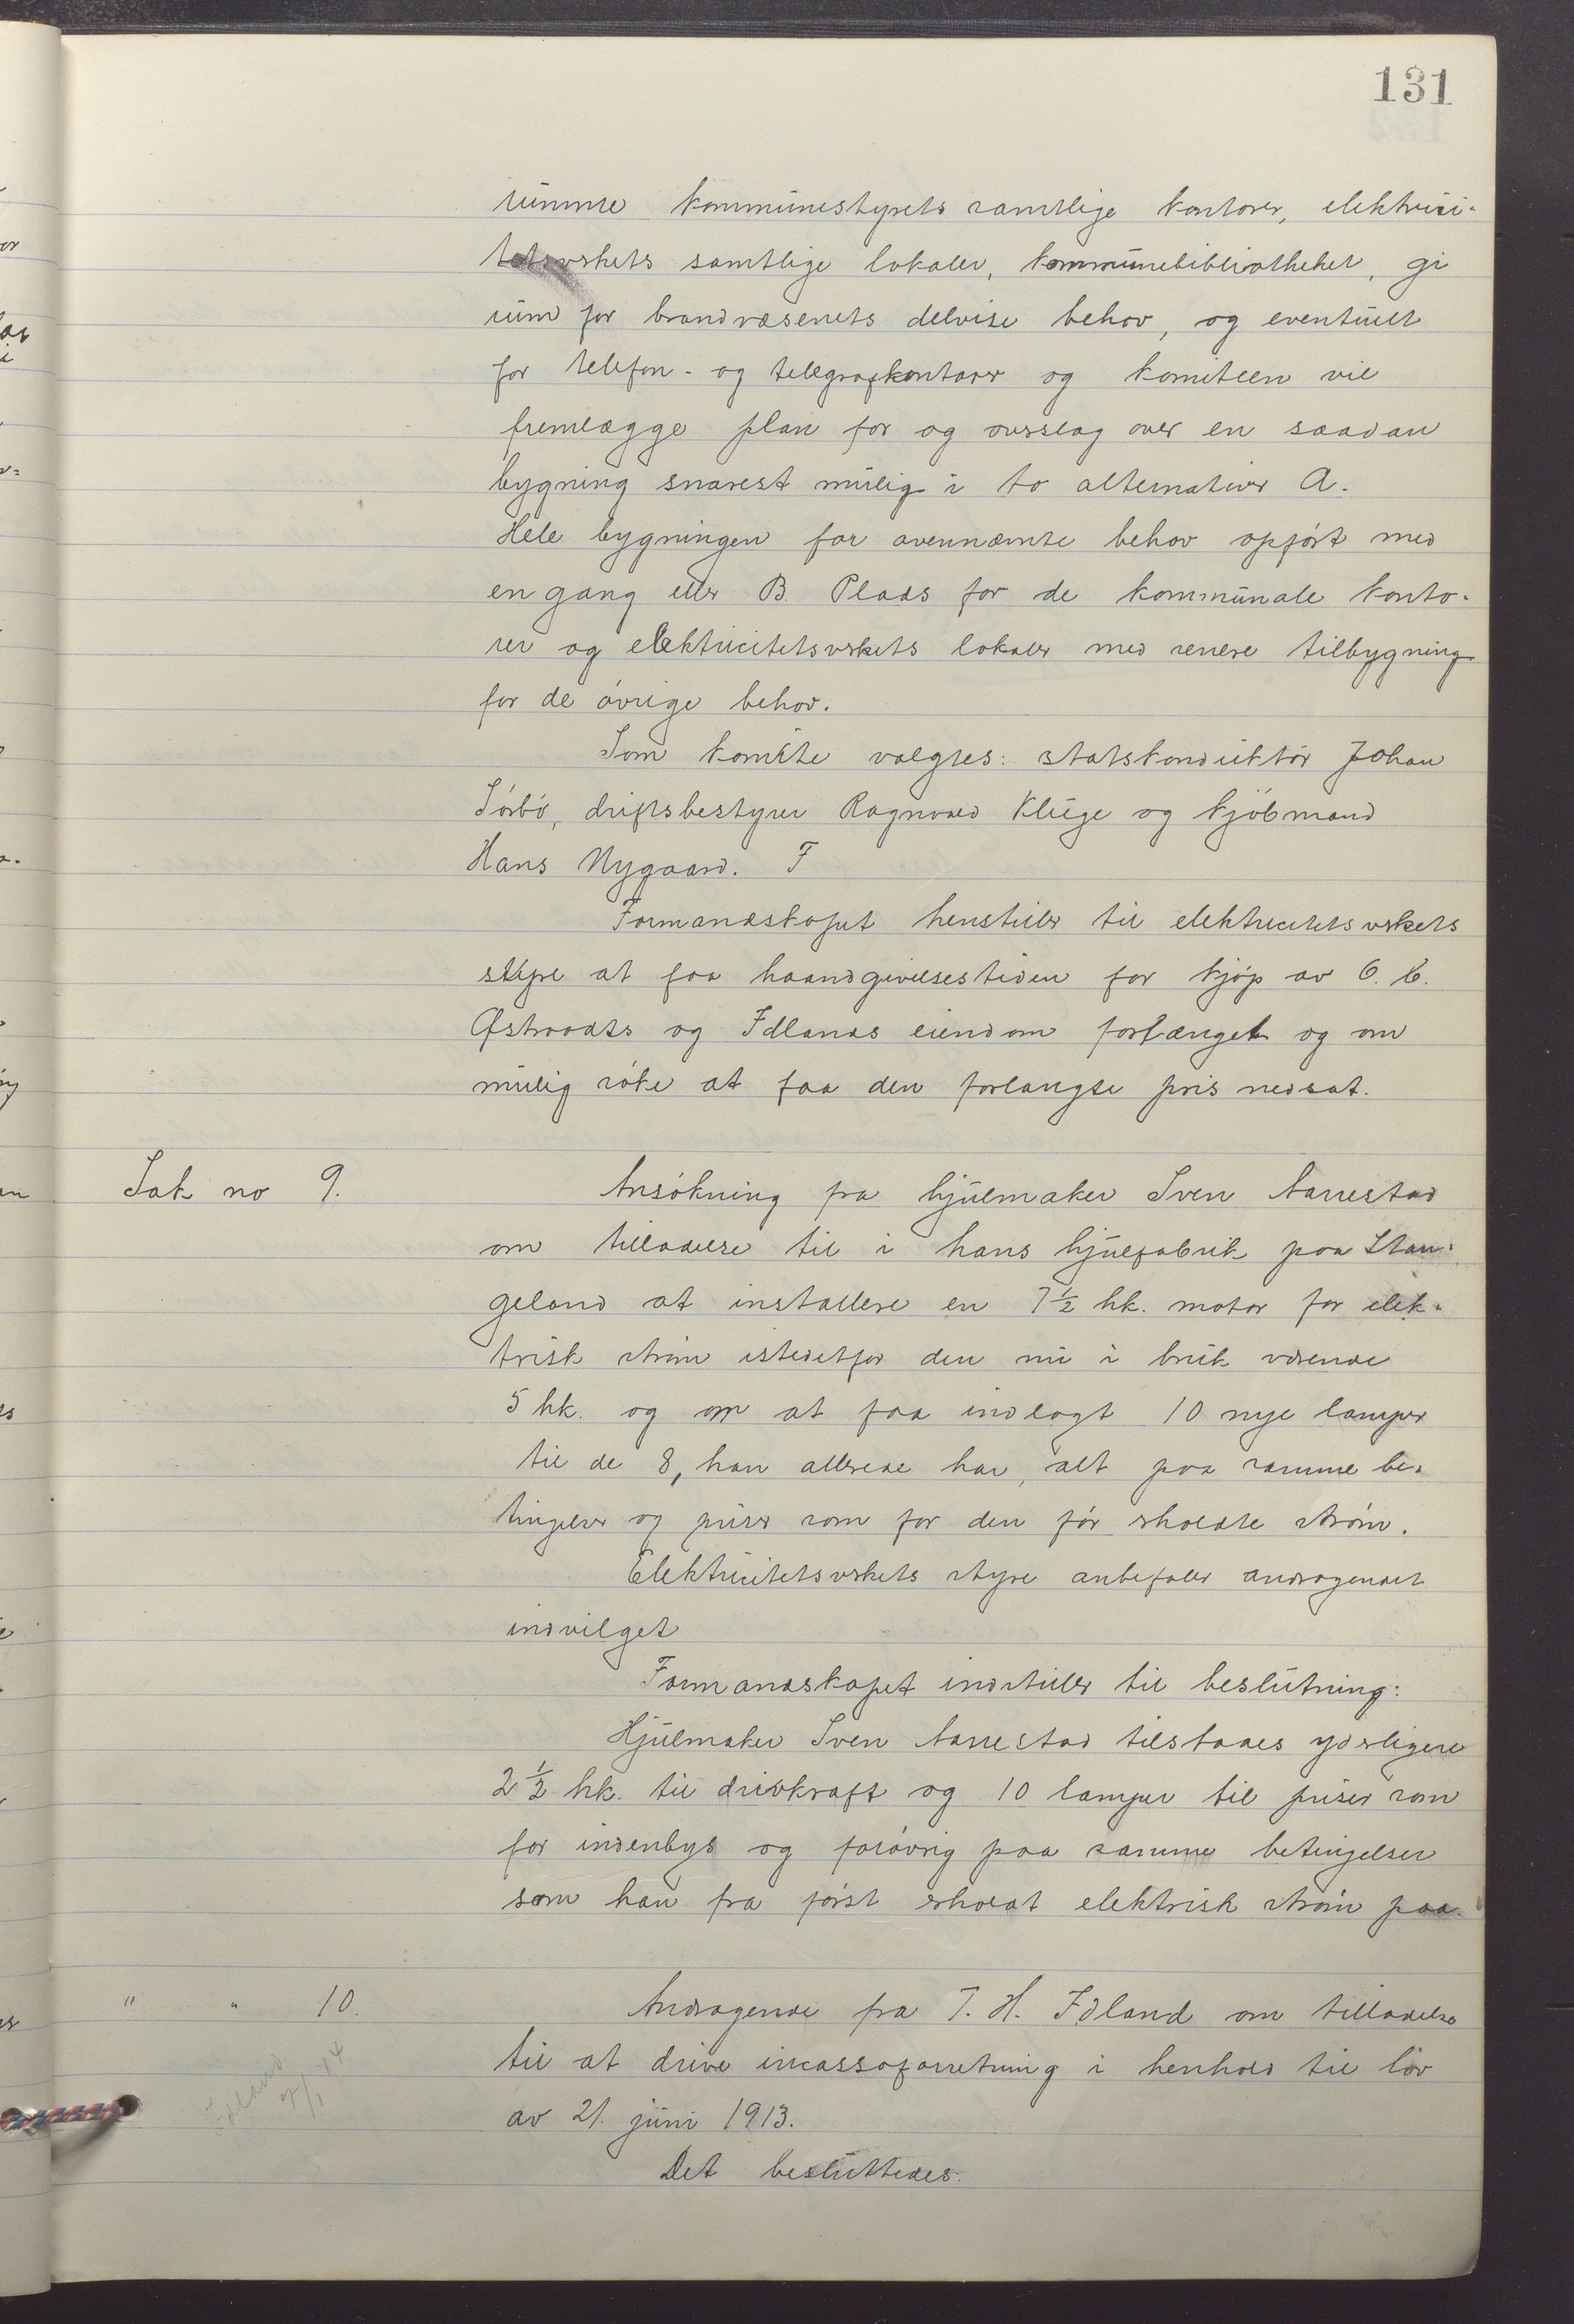 131
rumme kommunestyrets samtlige kontorer, elektrici-
tetsverkets samtlige lokaler, kommunebibliotheket, gi
rum for brandvæsenets delvise behov, og eventuelt
for telefon- og telegrafkontorer og komiteen vil
fremlægge plan for og overslag over en saadan
bygning snarest mulig i to alternativer A.
Hele bygningen for ovennævnte behov opført med
en gang eller B. Plads for de kommunale konto-
rer og elektricitetsverkets lokaler med senere tilbygning
for de øvrige behov.
Som komite valgtes: statskonduktør Johan
Sørbø, driftsbestyrer Ragnvald Kluge og kjøbmand
Hans Nygaard. F
Formandskapet henstiller til elektricitetsverkets
styre at faa haandgivelsestiden for kjøp av O. B.
Østraadts og Idlands eiendom forlænget og om
mulig søke at faa den forlangte pris nedsat.
Sak no 9. Ansøkning fra hjulmaker Sven Aarrestad
om tilladelse til i hans hjulfabrik paa Stan-
geland at installere en 7½ hk. motor for elek-
trisk strøm istedetfor den nu i bruk værende
5 hk. og om at faa indlagt 10 nye lamper
til de 8, han allerede har, alt paa samme be-
tingelser og priser som for den før erholdte strøm.
Elektricitetsverkets styre anbefaler andragendet
indvilget
Formandskapet indstiller til beslutning:
Hjulmaker Sven Aarrestad tilstaaes yderligere
2½ hk. til drivkraft og 10 lamper til priser som
for indenbys og forøvrig paa samme betingelser
som han fra først erholdt elektrisk strøm paa.
" " 10. Andragende fra T. H. Idland om tilladelse
til at drive incassoforretning i henhold til lov
av 21. juni 1913.
Det besluttedes: